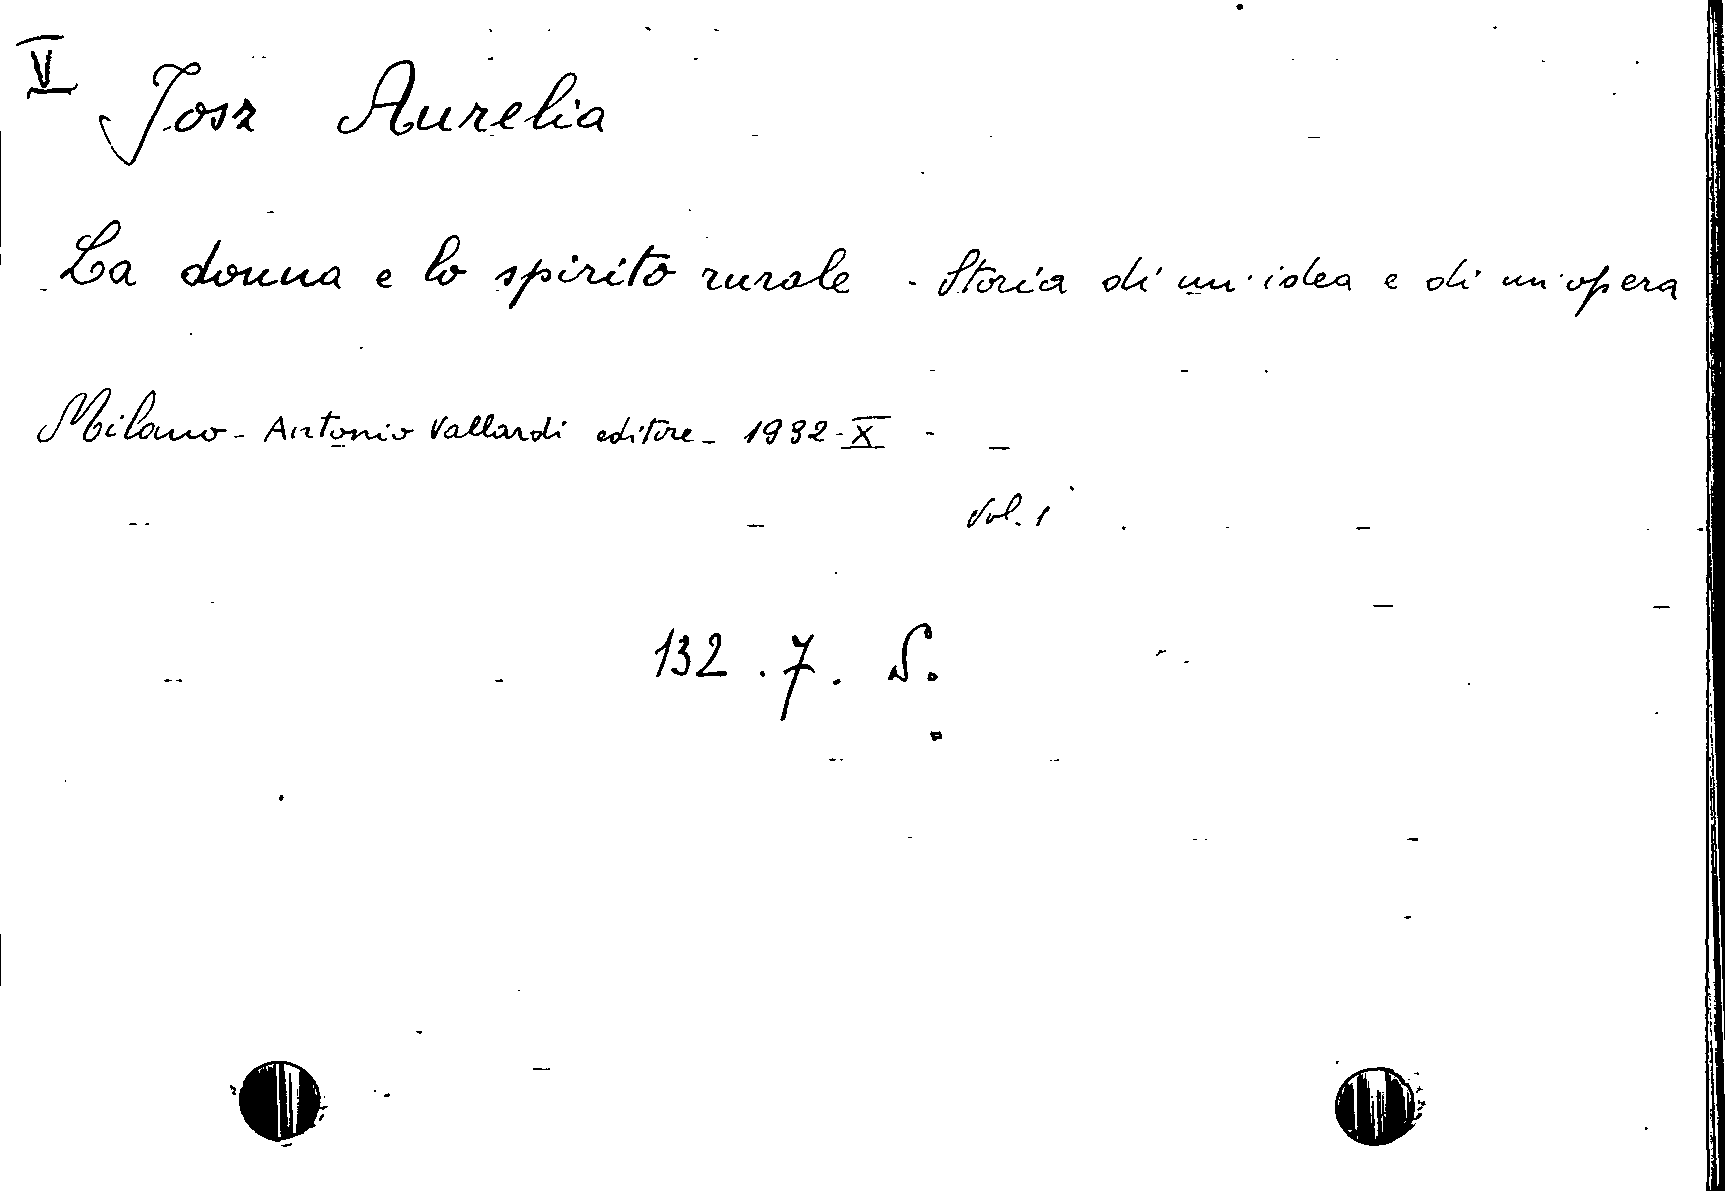 V
Josz Aurelia
La donna e lo spirito rurale - Storia di un'idea e di un'opera
Milano - Antonio Vallardi editore - 1932-X -
Vol. 1
132. 7. S.